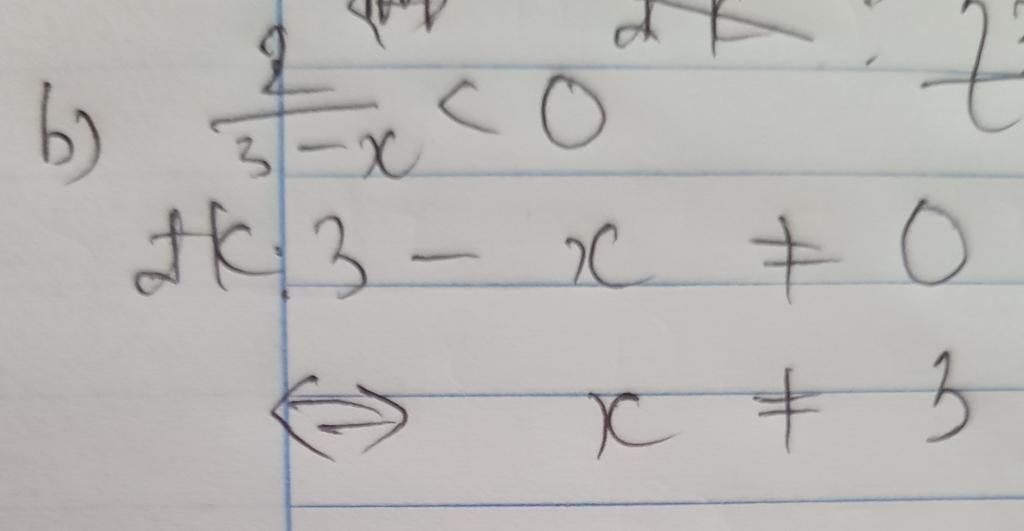 b) 2/(3 - x) < 0
đk: 3 - x ≠ 0
⇔ x ≠ 3